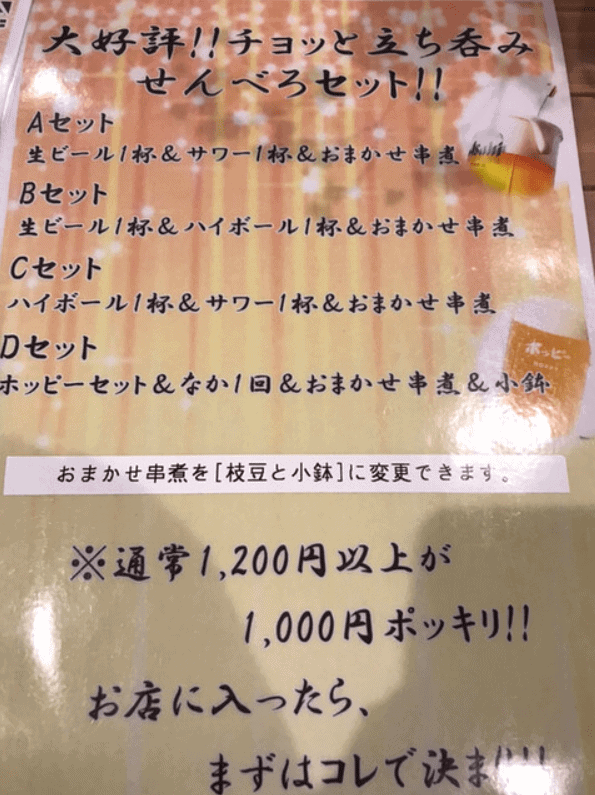 大好評!!チョッと立ち呑み
せんべろセット!!
Aセット
生ビール1杯&サワー1杯&おまかせ串煮
Bセット
生ビール1杯&ハイボール1杯&おまかせ串煮
Cセット
ハイボール1杯&サワー1杯&おまかせ串煮
Dセット
ホッピーセット&なか1回&おまかせ串煮&小鉢
ホッピー
おまかせ串煮を[枝豆と小鉢]に変更できます。
※通常1,200円以上が
1,000円ポッキリ!!
お店に入ったら、
まずはコレで決まり!!